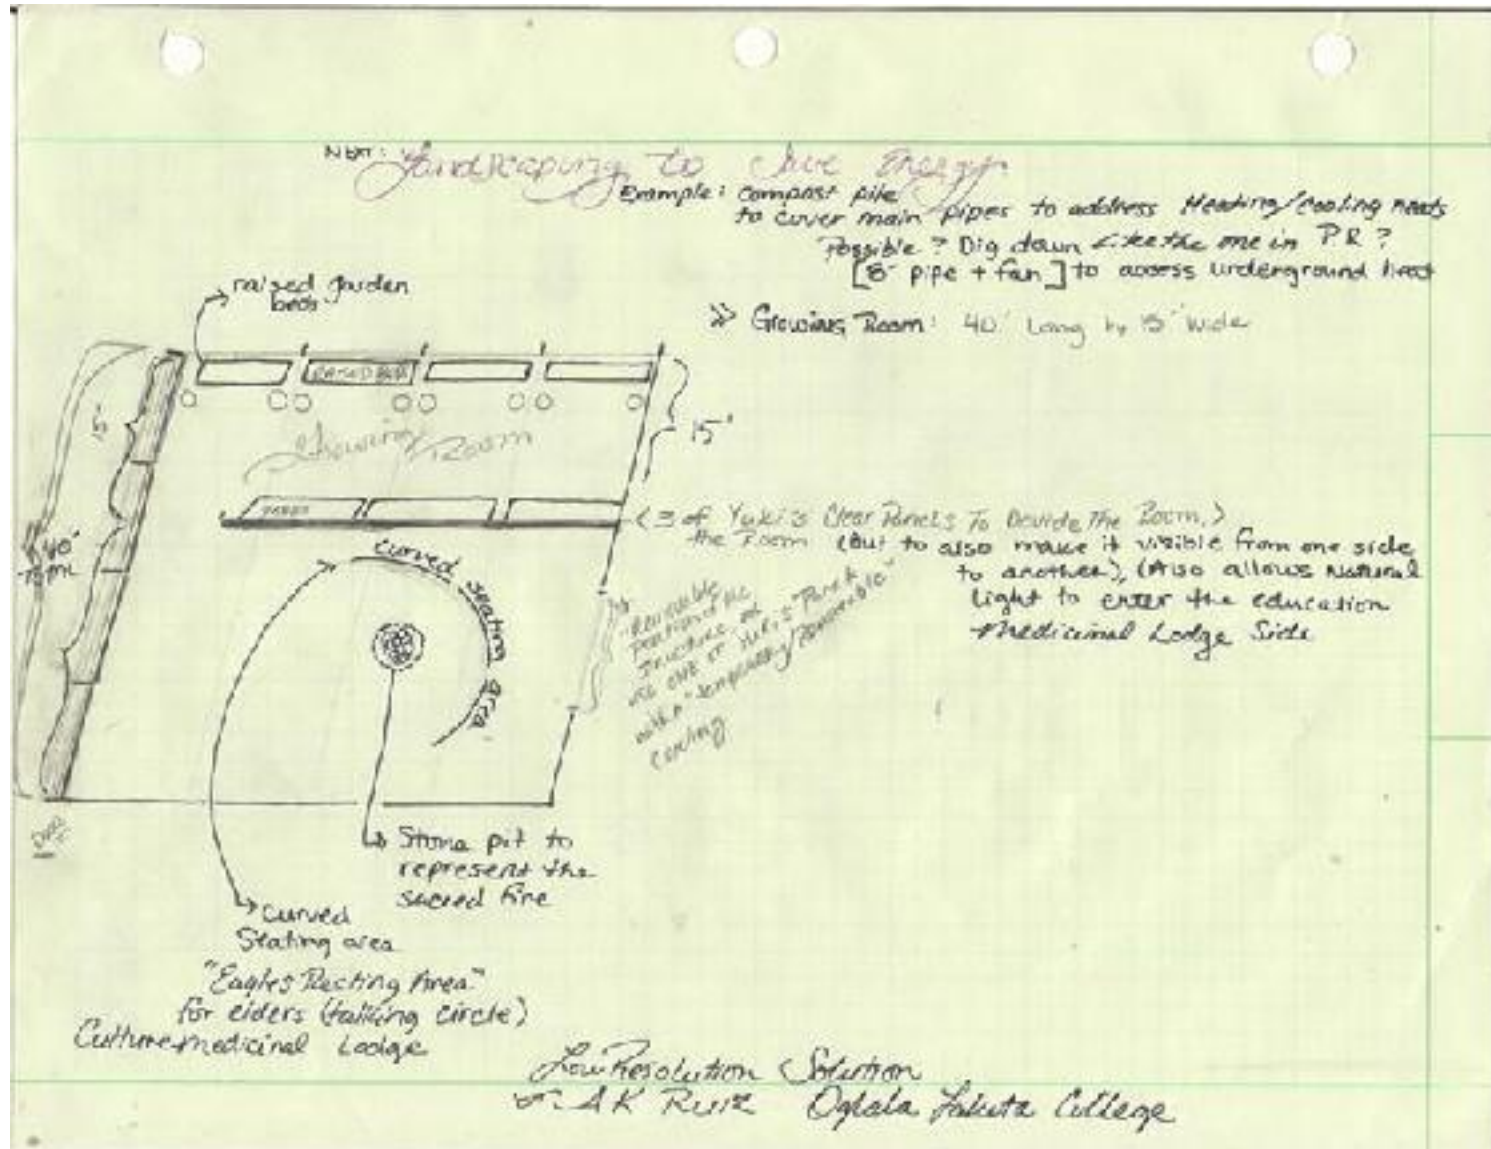 Next: Landscaping to Save Energy
Example: compost pile
to cover main pipes to address Heating/cooling needs
Possible? Dig down like the one in P.R?
[8" pipe + fan] to access underground heat
>> Growing Room: 40' Long by 15' Wide
raised garden
beds
RAISED BEDS
15'
Growing
Room
15'
40'
<3 of Yuki's Clear Panels To Devide The Room,>
the Room (But to also make it visible from one side
to another), (Also allows Natural
light to enter the education
Medicinal Lodge Side
curved seating area
Removable
Portion of the
Structure, or
use one of Yuki's "Panels
with a "temporary/removable"
Door
Stone pit to
represent the
sacred fire
curved
Seating area
"Eagles Resting Area"
for elders (talking circle)
Culture-medicinal Lodge
Low Resolution Solution
AK Ruiz Oglala Lakota College